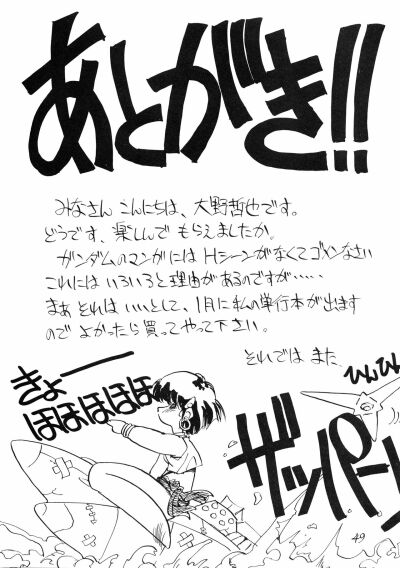 あとがき!!
みなさん こんにちは、大野哲也です。
どうです、楽しんで もらえましたか。
ガンダムのマンガには Hシーンがなくてゴメンなさい
これには いろいろと理由があるのですが‥‥‥
まあ それは いいとして、1月に私の単行本が出ます
ので よかったら買ってやって下さい。
それでは また
きょー
ほほほほほ
ひんひん
ザッパーン
49